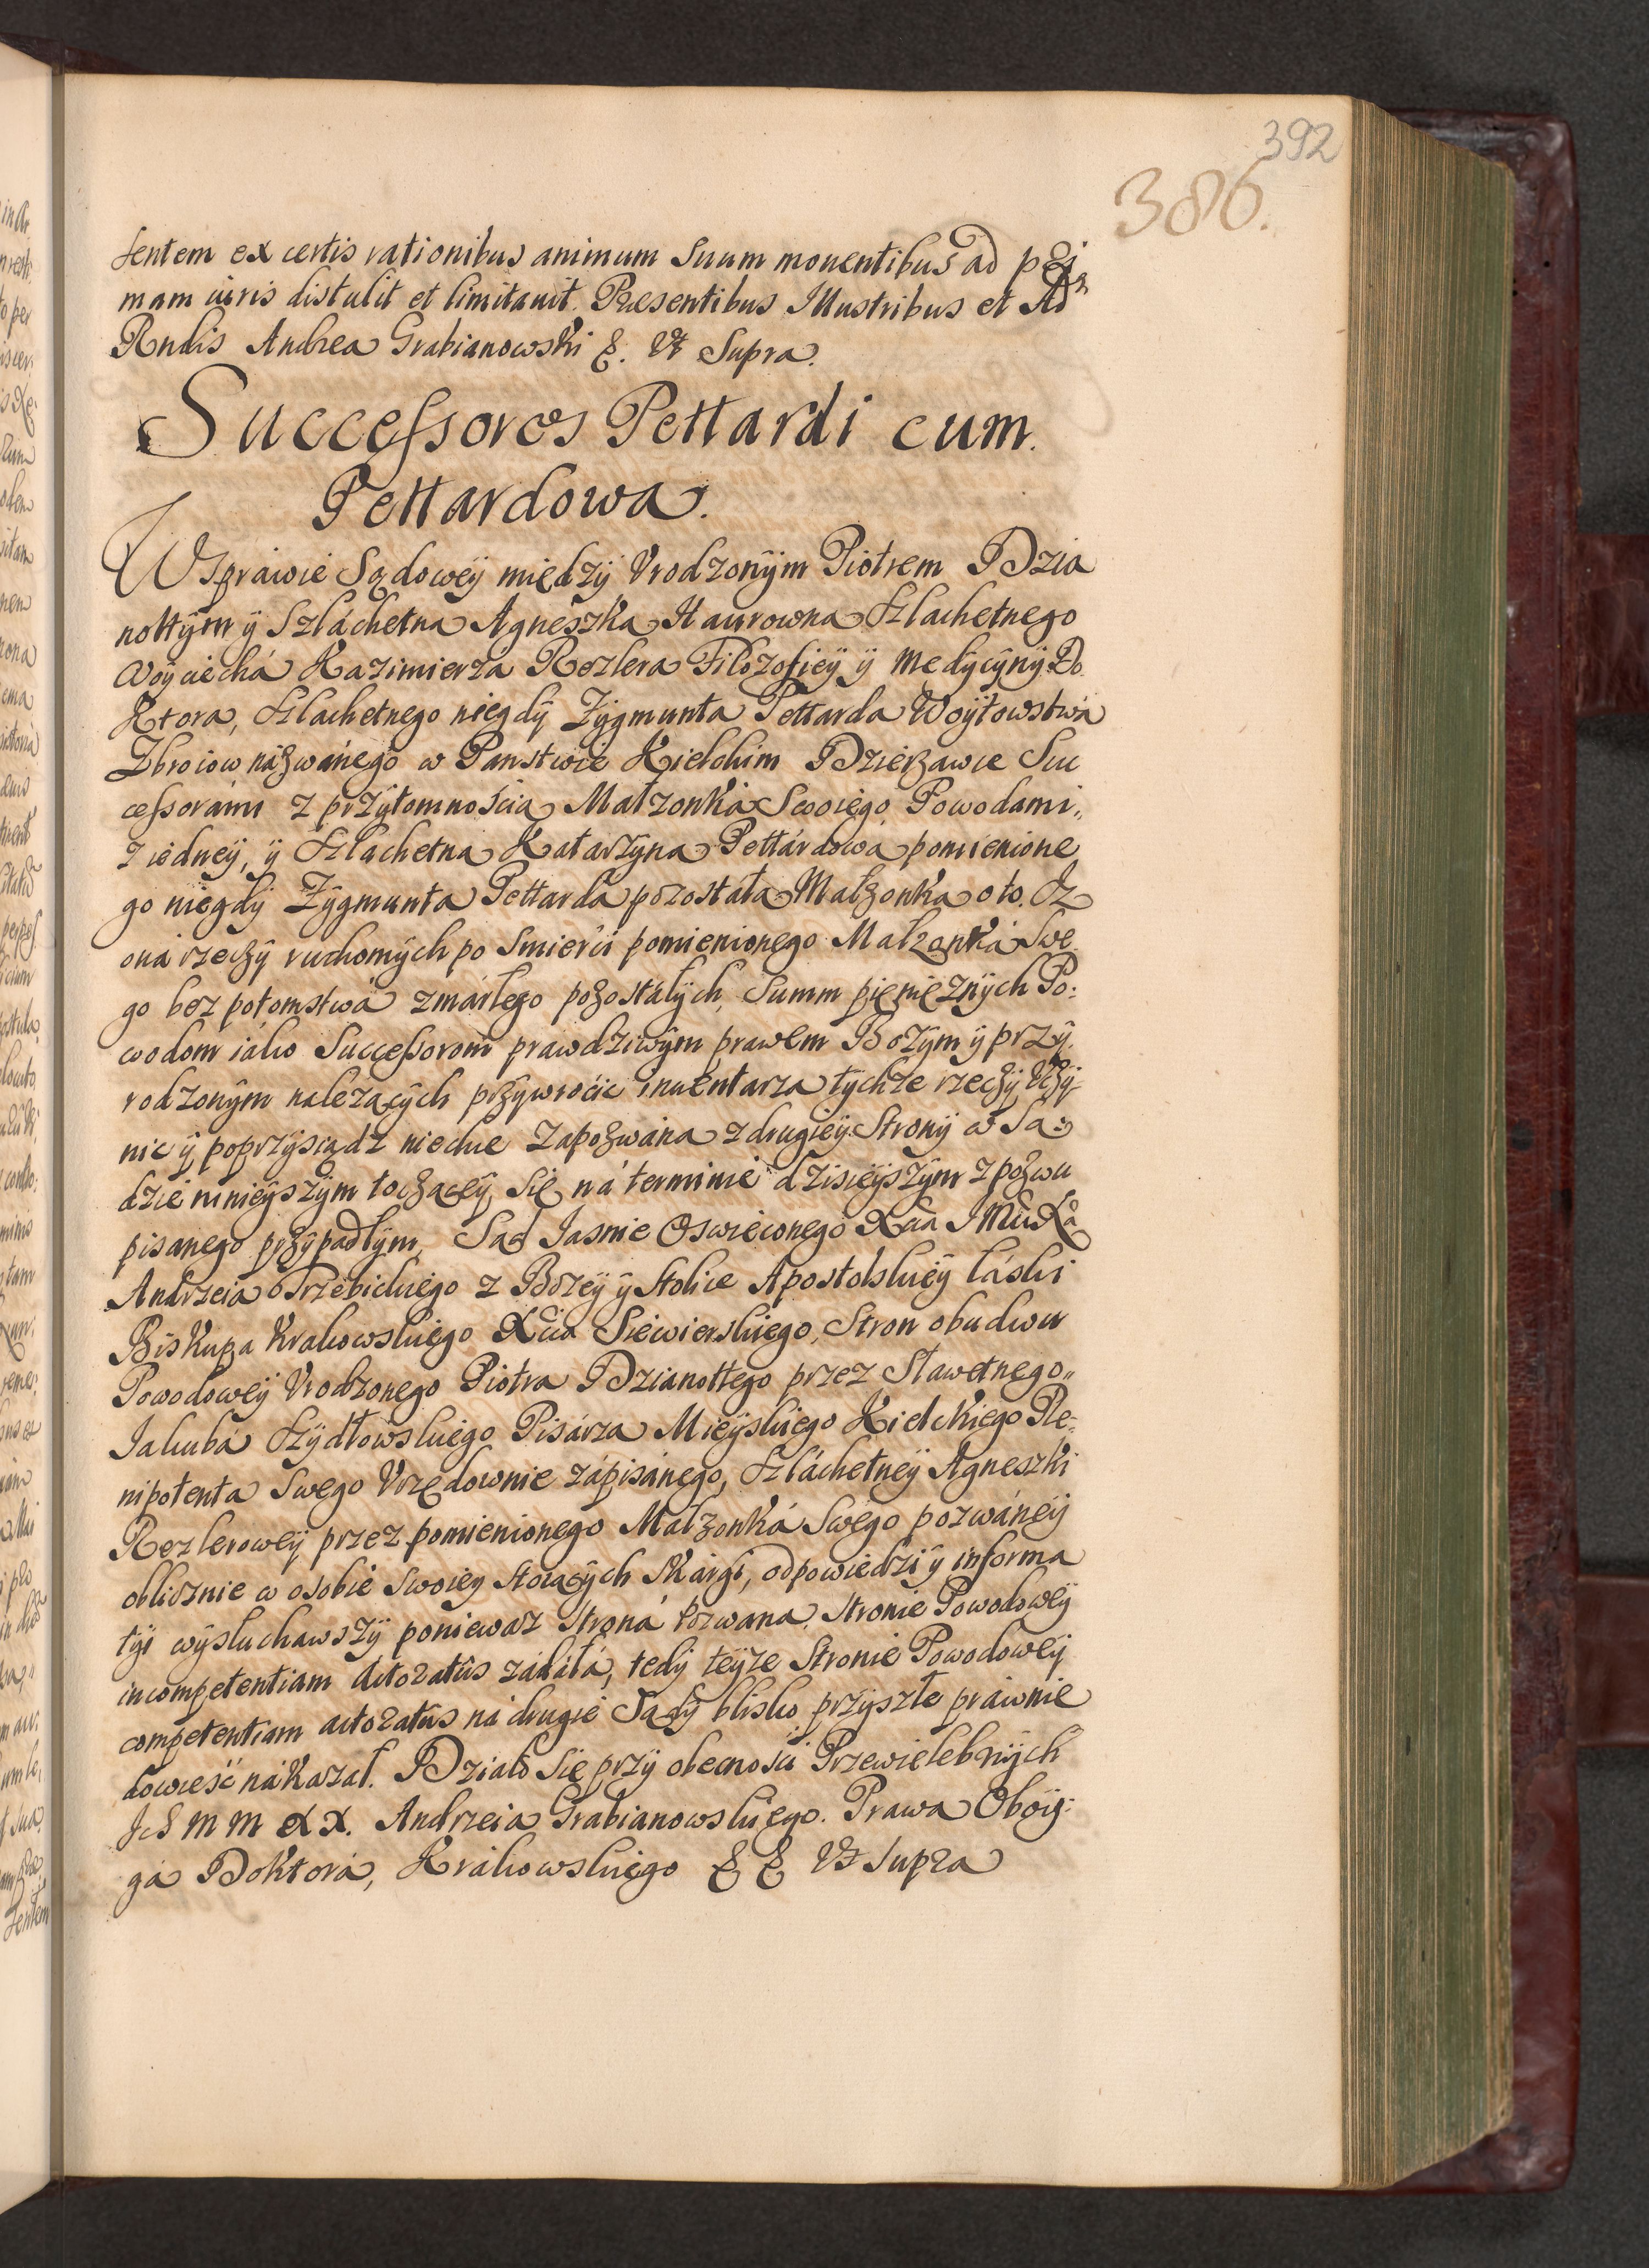 392
386.
sentem ex certis rationibus animum Suum mouentibus ad pri
mam iuris distulit et limitauit. Praesentibus Illustribus et Adm
Rndis Andrea Grabianowski &. Vt Supra.
Successores Pettardi cum.
Pettardowa.
W Sprawie Sądoweÿ międzÿ Vrodzonÿm Piotrem Dzia
nottÿm ÿ Szláchetna Agneszka Haurowna Szlachetnego
Woÿciechá Kazimierza Rezlera Filozofieÿ ÿ Medÿcÿnÿ Do
Ktora, Szlachetnego niegdÿ Zÿgmunta Pettarda Woÿtowstwá
Zbroiow názwánego w Panstwie Kielckim Dzierzawce Suc
cessorámi z przÿtomnościa Małzonká Swoiego Powodami,,
z iedneÿ, ÿ Szlachetna Katarzÿna Pettárdowa pomienione
go niegdÿ Zÿgmunta Pettarda pozostała Małzonka oto. Iz
oná rzeczÿ ruchomÿch po Smierci pomienionego Małzonká Swe
go bez potomstwá zmárłego pozostáłÿch, Summ pięnięznÿch Po:
wodom iako Successorom prawdziwÿm prawem Bozÿm ÿ przÿ
rodzonÿm nalezącÿch przÿwrócic inuentarza tÿchze rzeczÿ Vczÿ
nic ÿ poprzÿsiądz niechce Zapozwána z drugieÿ Stronÿ w Są:
dzie ninieÿszÿm toczáceÿ Się ná terminie dzisieÿszÿm z pozwu
pisanego przÿpadłÿm, Sąd Jasnie Oswieconego Xcia JMci Xa
Andrzeia Trzebickiego z Bozeÿ ÿ Stolice Apostolskieÿ łáski
Biskupa Krakowskiego Xcia Siewierskiego, Stron obudwu
Powodoweÿ Vrodzonego Piotra Dzianottego przez Sławetnego,,
Jakubá Szÿdłowskiego Pisárza Mieÿskiego Kielckiego Ple:
nipotenta Swego Vrzędownie zápisánego, Szláchetneÿ Agneszki
Rezleroweÿ przez pomienionego Małzonká Swego pozwáneÿ
oblicznie w osobie Swoieÿ stoiącÿch Skárgi, odpowiedzi ÿ informa
tÿi wÿsłuchawszÿ poniewaz Stroná Pozwana Stronie Powodoweÿ
incompetentiam Actoratûs zádáłá, tedÿ teÿze Stronie Powodoweÿ
competentiam actoratûs ná drugie Sądÿ blisko przÿszłe práwnie
dowiesć nákazał. Działo Się przÿ obecności Przewielebnÿch
Ich m m XX. Andrzeia Grabianowskiego. Prawa Oboÿ:
gá Doktorá, Krákowskiego & & Vt Supra